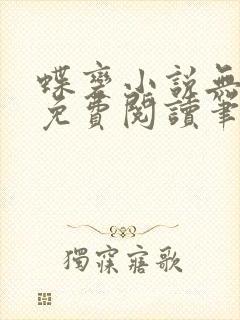 蝶變小說無
免費閱讀筆
獨寐寤歌